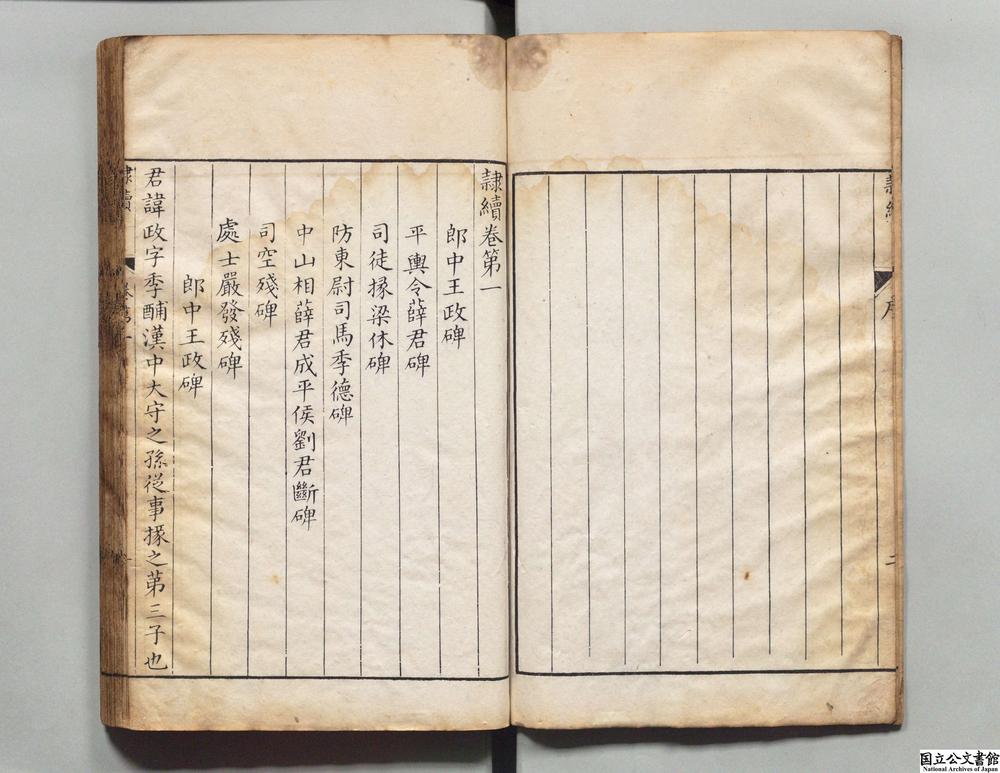 隷續卷第一
郎中王政碑
平輿令薛君碑
司徒掾梁休碑
防東尉司馬季德碑
中山相薛君成平侯劉君斷碑
司空殘碑
處士嚴發殘碑
郎中王政碑
君諱政字季酺漢中大守之孫從事掾之第三子也
国立公文書館
National Archives of Japan